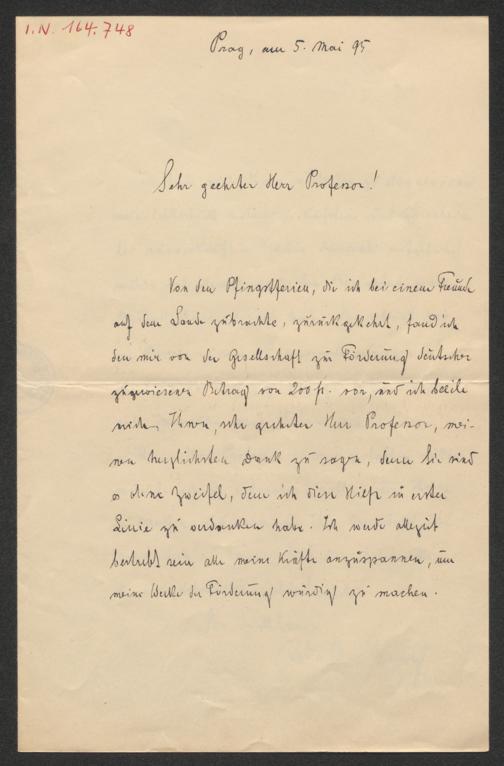 I.N. 164.748
Prag, am 5. Mai 95
Sehr geehrter Herr Professor!
Von den Pfingstferien, die ich bei einem Freunde
auf dem Lande zubrachte, zurückgekehrt, fand ich
den mir von der Gesellschaft zur Förderung deutscher
zugewiesenen Betrag von 200 fl. vor, und ich beeile
mich, Ihnen, sehr geehrter Herr Professor, mei-
nen herzlichsten Dank zu sagen, denn Sie sind
es ohne Zweifel, dem ich diese Hilfe in erster
Linie zu verdanken habe. Ich werde allezeit
bestrebt sein alle meine Kräfte anzuspannen, um
meine Werke der Förderung würdig zu machen.